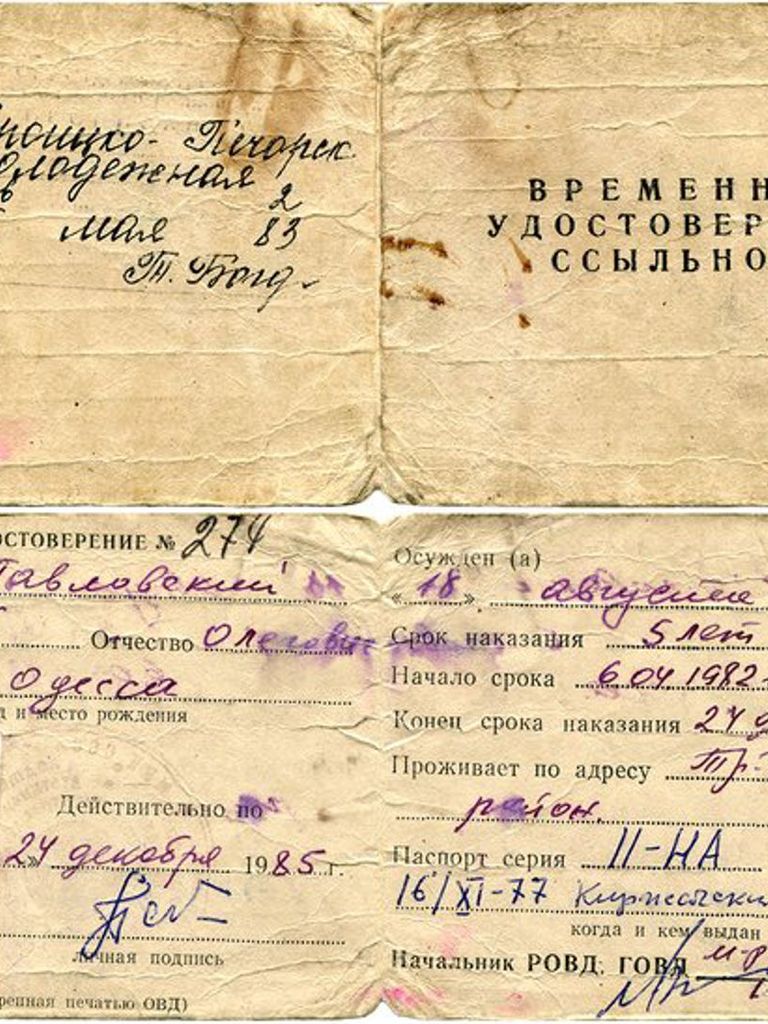 Печорск
мая 83
ВРЕМЕНН
УДОСТОВЕР
ССЫЛЬНО
ОСТОВЕРЕНИЕ № 274
Павловский
Отчество Олегович
Одесса
д и место рождения
Действительно по
24 декабря 1985 г.
личная подпись
репная печатью ОВД)
Осужден (а)
« 18 » августа
Срок наказания 5 лет
Начало срока 6 04 1982
Конец срока наказания 24
Проживает по адресу Тр-
район.
Паспорт серия II-НА
16/XI-77
когда и кем выдан
Начальник РОВД, ГОВД